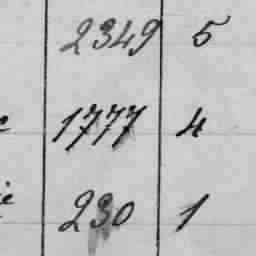 2349 5
1777 4
230 1